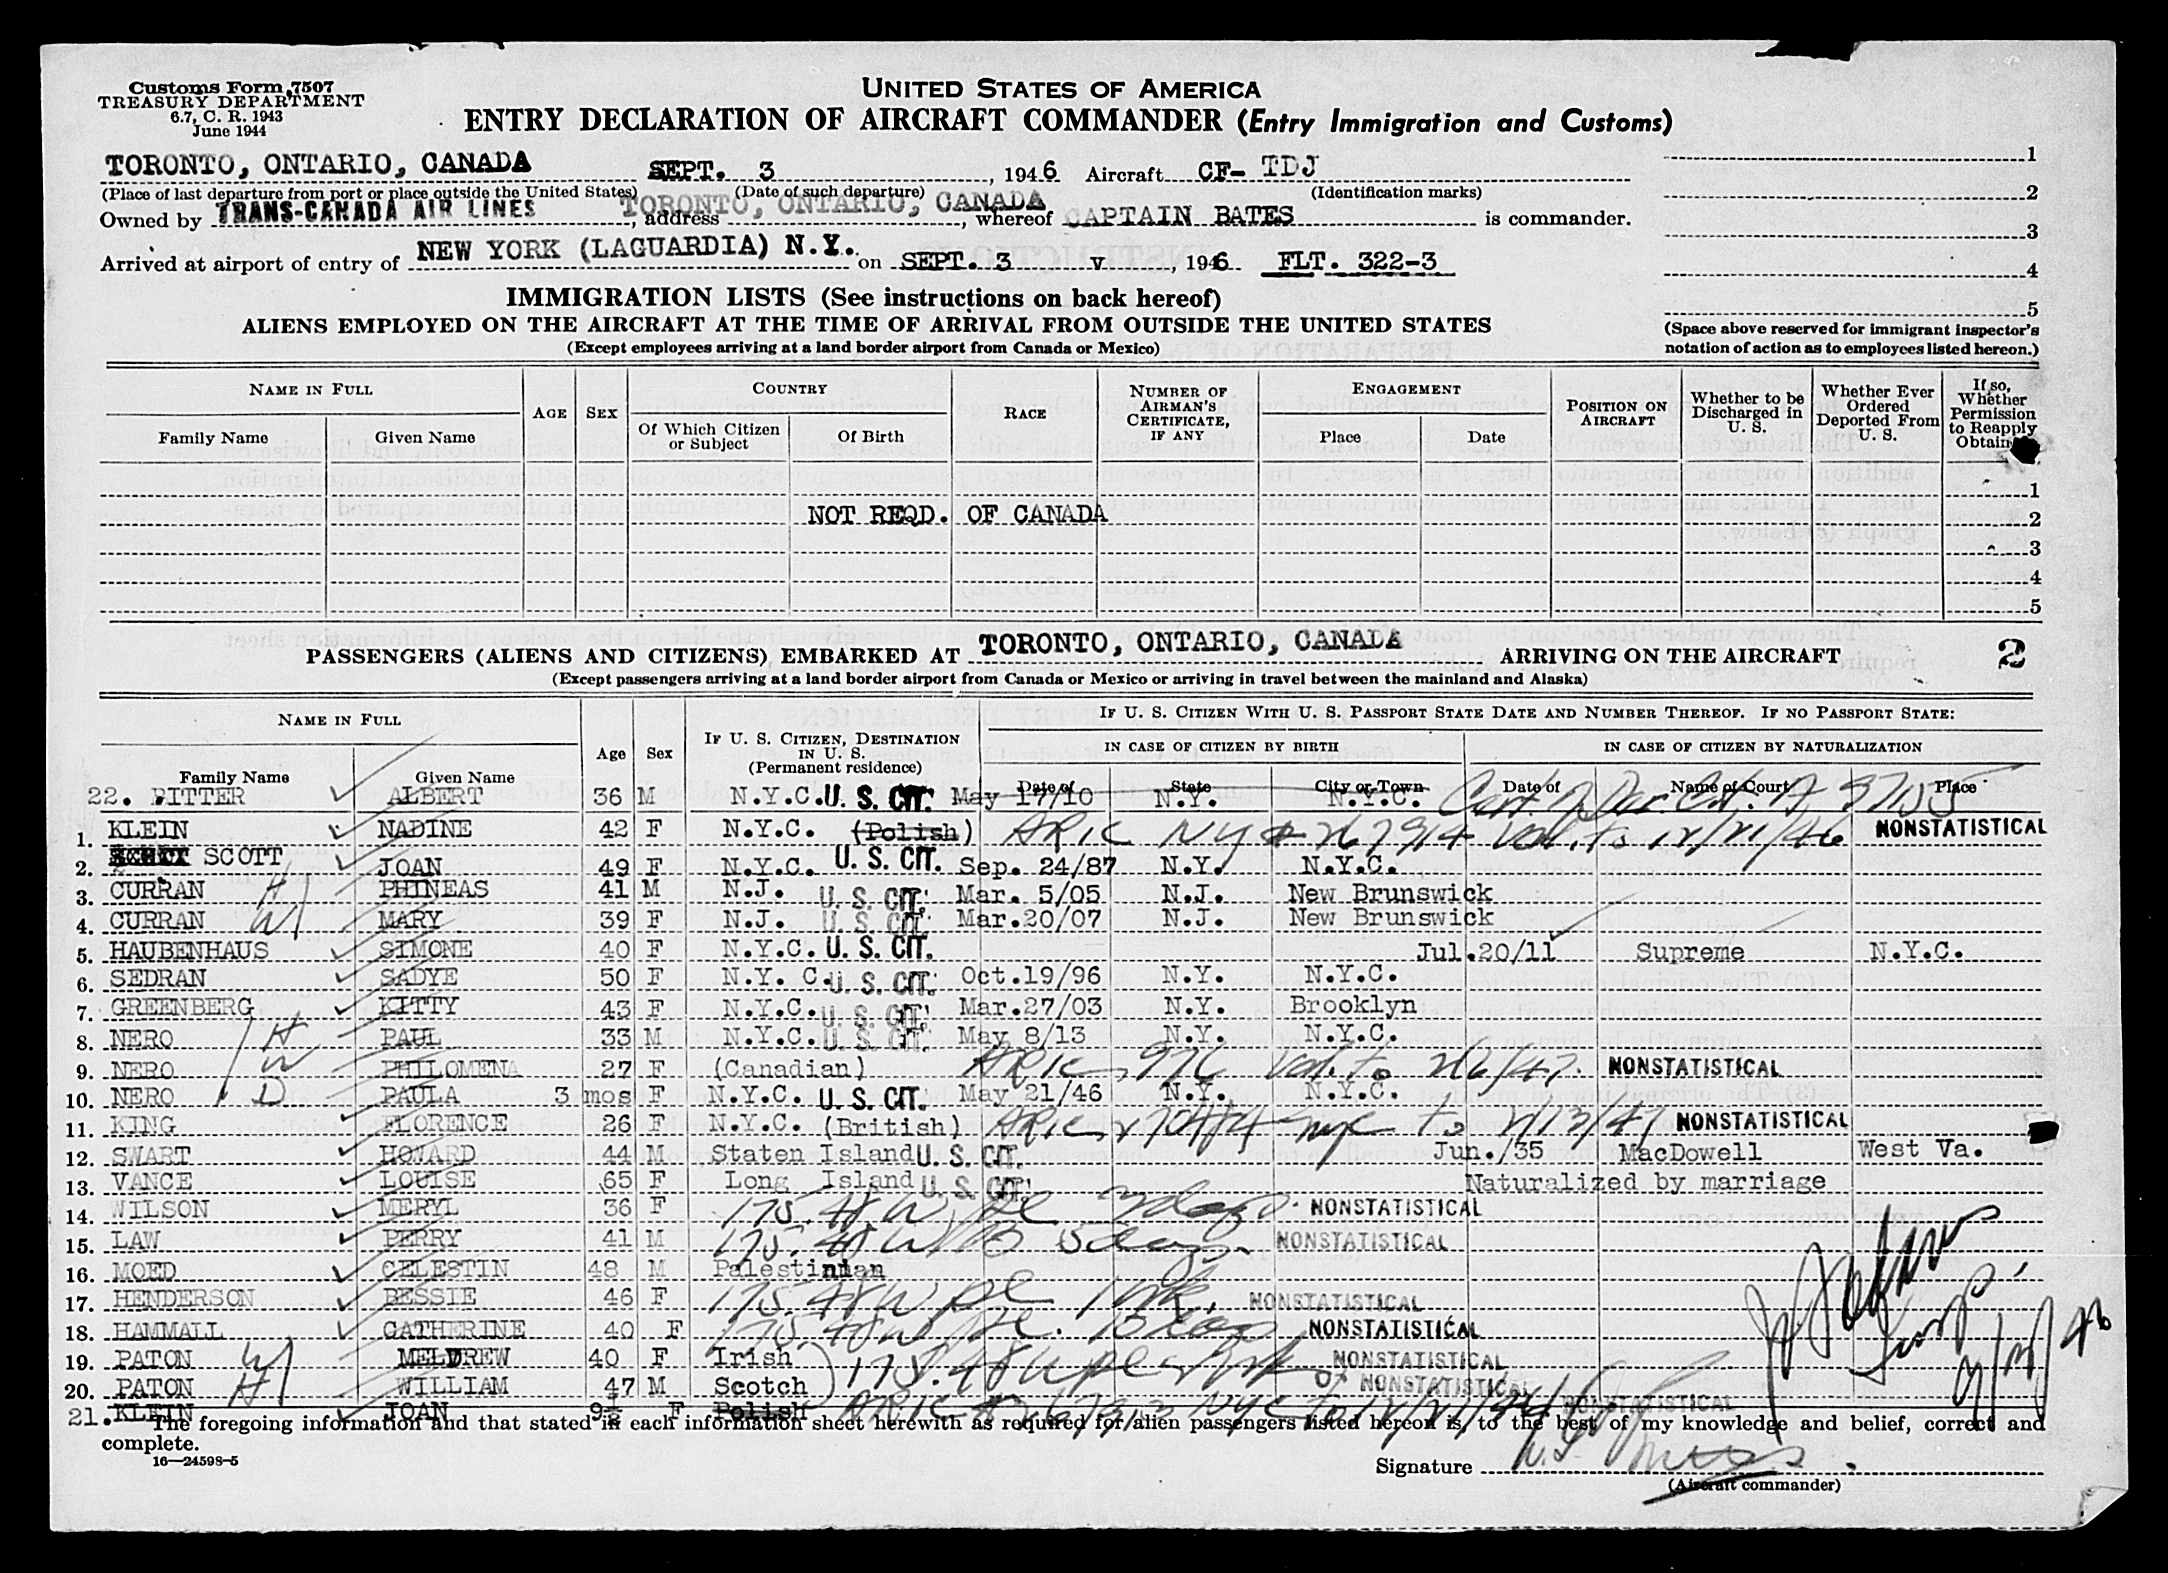 Customs Form 7507
TREASURY DEPARTMENT
6.7, C. R. 1943
June 1944
UNITED STATES OF AMERICA
ENTRY DECLARATION OF AIRCRAFT COMMANDER (Entry Immigration and Customs)
TORONTO, ONTARIO, CANADA SEPT. 3, 1946 Aircraft CF- TDJ
(Place of last departure from port or place outside the United States) (Date of such departure) (Identification marks)
Owned by TRANS-CANADA AIR LINES, address TORONTO, ONTARIO, CANADA, whereof CAPTAIN BATES is commander.
Arrived at airport of entry of NEW YORK (LAGUARDIA) N.Y. on SEPT. 3, 1946 FLT. 322-3
1
2
3
4
5
(Space above reserved for immigrant inspector's
notation of action as to employees listed hereon.)
IMMIGRATION LISTS (See instructions on back hereof)
ALIENS EMPLOYED ON THE AIRCRAFT AT THE TIME OF ARRIVAL FROM OUTSIDE THE UNITED STATES
(Except employees arriving at a land border airport from Canada or Mexico)
NAME IN FULL
Family Name Given Name
AGE SEX
COUNTRY
Of Which Citizen or Subject Of Birth
RACE
NUMBER OF AIRMAN'S CERTIFICATE, IF ANY
ENGAGEMENT
Place Date
POSITION ON AIRCRAFT
Whether to be Discharged in U. S.
Whether Ever Ordered Deported From U. S.
If so, Whether Permission to Reapply Obtain
1
NOT REQD. OF CANADA 2
3
4
5
PASSENGERS (ALIENS AND CITIZENS) EMBARKED AT TORONTO, ONTARIO, CANADA ARRIVING ON THE AIRCRAFT 2
(Except passengers arriving at a land border airport from Canada or Mexico or arriving in travel between the mainland and Alaska)
NAME IN FULL
Family Name Given Name
Age Sex
IF U. S. CITIZEN, DESTINATION IN U. S.
(Permanent residence)
IF U. S. CITIZEN WITH U. S. PASSPORT STATE DATE AND NUMBER THEREOF. IF NO PASSPORT STATE:
IN CASE OF CITIZEN BY BIRTH IN CASE OF CITIZEN BY NATURALIZATION
Date of State City or Town Date of Name of Court Place
22. RITTER ALBERT 36 M N.Y.C. U. S. CIT. May 17/10 N.Y. N.Y.C.
1. KLEIN NADINE 42 F N.Y.C. (Polish) ARIC NY # 267914 Val. to 12/21/46 NONSTATISTICAL
2. SCOTT JOAN 49 F N.Y.C. U. S. CIT. Sep. 24/87 N.Y. N.Y.C.
3. CURRAN H PHINEAS 41 M N.J. U. S. CIT. Mar. 5/05 N.J. New Brunswick
4. CURRAN W MARY 39 F N.J. U. S. CIT. Mar.20/07 N.J. New Brunswick
5. HAUBENHAUS SIMONE 40 F N.Y.C. U. S. CIT. Jul.20/11 Supreme N.Y.C.
6. SEDRAN SADYE 50 F N.Y. C. U. S. CIT. Oct.19/96 N.Y. N.Y.C.
7. GREENBERG KITTY 43 F N.Y.C. U. S. CIT. Mar.27/03 N.Y. Brooklyn
8. NERO H PAUL 33 M N.Y.C. U. S. CIT. May 8/13 N.Y. N.Y.C.
9. NERO W PHILOMENA 27 F (Canadian) ARIC 976 Val. to 2/6/47. NONSTATISTICAL
10. NERO D PAULA 3 mos F N.Y.C. U. S. CIT. May 21/46 N.Y. N.Y.C.
11. KING FLORENCE 26 F N.Y.C. (British) ARIC NYC to 2/13/47 NONSTATISTICAL
12. SWART HOWARD 44 M Staten Island U. S. CIT. Jun./35 MacDowell West Va.
13. VANCE LOUISE 65 F Long Island U. S. CIT. Naturalized by marriage
14. WILSON MERYL 36 F 175.48 NONSTATISTICAL
15. LAW PERRY 41 M 175.48 NONSTATISTICAL
16. MOED CELESTIN 48 M Palestinian
17. HENDERSON BESSIE 46 F 175.48 NONSTATISTICAL
18. HAMMALL CATHERINE 40 F 175.48 NONSTATISTICAL
19. PATON W MELDREW 40 F Irish 175.48 NONSTATISTICAL
20. PATON H WILLIAM 47 M Scotch NONSTATISTICAL
21. KLEIN JOAN 9½ F Polish ARIC NYC NONSTATISTICAL
The foregoing information and that stated in each information sheet herewith as required for alien passengers listed hereon is, to the best of my knowledge and belief, correct and
complete.
16—24598-5
Signature
(Aircraft commander)